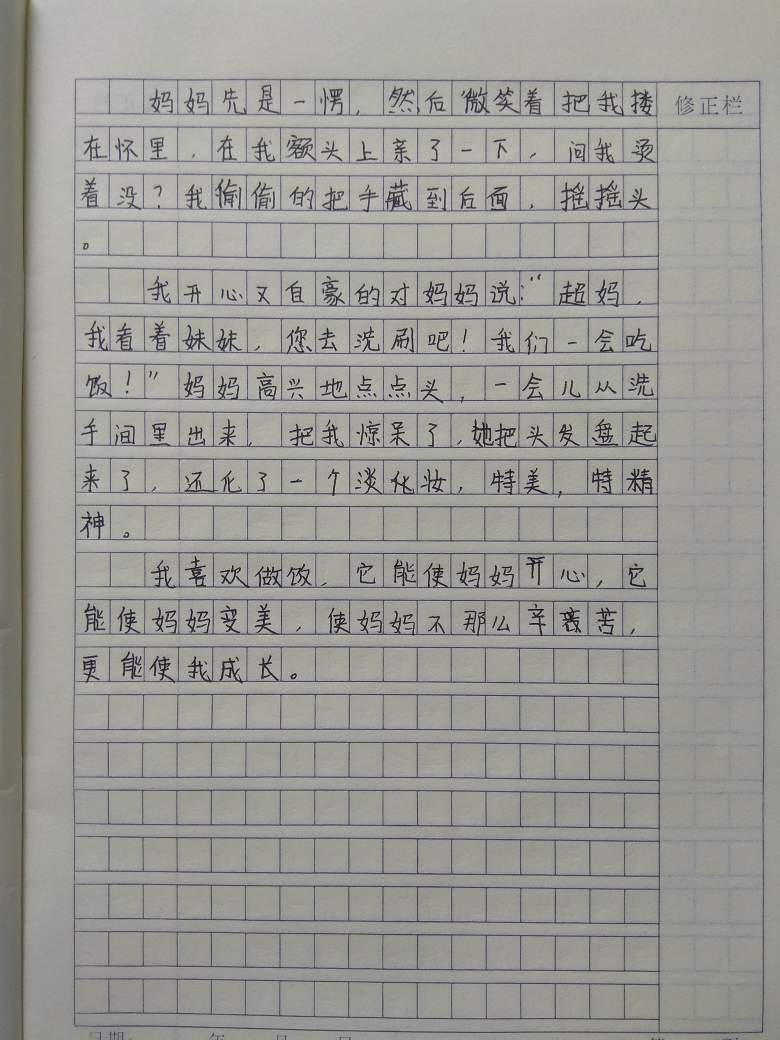 妈妈先是一愣，然后微笑着把我搂
修正栏
在怀里，在我额头上亲了一下，问我烫
着没？我偷偷的把手藏到后面，摇摇头
。
我开心又自豪的对妈妈说：“超妈，
我看着妹妹，您去洗刷吧！我们一会吃
饭！”妈妈高兴地点点头，一会儿从洗
手间里出来，把我惊呆了，她把头发盘起
来了，还化了一个淡化妆，特美，特精
神。
我喜欢做饭，它能使妈妈开心，它
能使妈妈变美，使妈妈不那么辛苦，
更能使我成长。